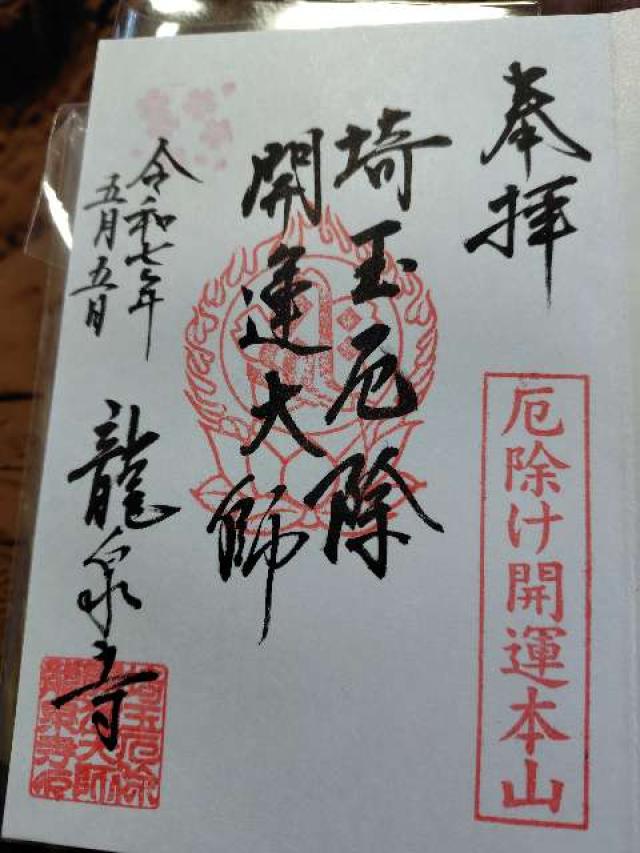 奉拝
厄除け開運本山
埼玉厄除
開運大師
令和七年
五月五日
龍泉寺